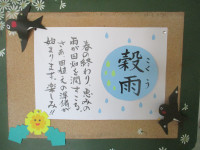 こくう
穀雨
春の終わり 恵みの
雨が田畑を潤すころ
さあ 田植えの準備が
始まります。楽しみ!!